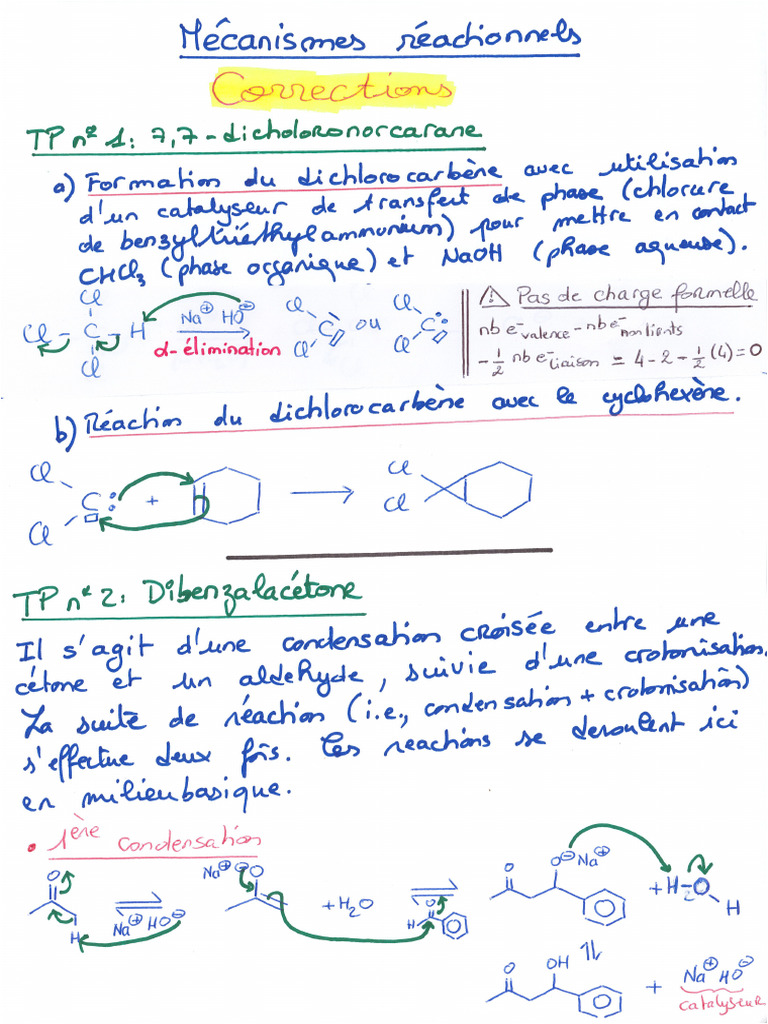 Mécanismes réactionnels
Corrections
TP n° 1: 7,7-dicholoronorcarane
a) Formation du dichlorocarbène avec utilisation
d'un catalyseur de transfert de phase (chlorure
de benzyltriéthylammonium) pour mettre en contact
CHCl3 (phase organique) et NaOH (phase aqueuse).
Cl
Cl C H Na⊕ HO⊖ Cl C Cl ou Cl C Cl
Cl
α-élimination
⚠ Pas de charge formelle
nb e⁻ valence - nb e⁻ non liants
- 1/2 nb e⁻ liaison = 4 - 2 - 1/2 (4) = 0
b) Réaction du dichlorocarbène avec le cyclohexène.
Cl Cl
C: +
Cl Cl
TP n° 2: Dibenzalacétone
Il s'agit d'une condensation croisée entre une
cétone et un aldehyde, suivie d'une crotonisation.
La suite de réaction (i.e., condensation + crotonisation)
s'effectue deux fois. Les reactions se deroulent ici
en milieu basique.
• 1ère condensation
O Na⊕ ⊖O O⊖ Na⊕
H Na⊕ HO⊖ + H2O H O + H-O H
O OH
O + Na⊕ HO⊖
catalyseur